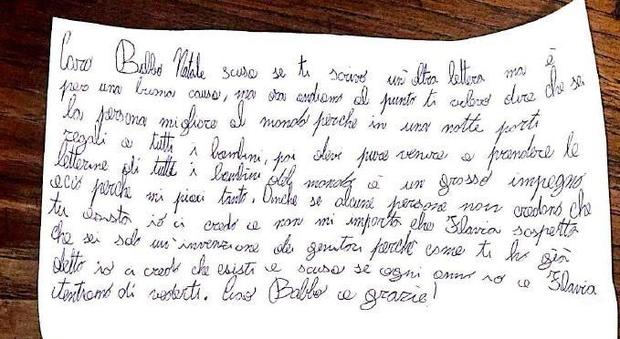 Caro Babbo Natale scusa se ti scrivo un'altra lettera ma è
per una buona causa, ma ora andiamo al punto ti volevo dire che sei
la persona migliore al mondo perché in una notte porti
regali a tutti i bambini, poi devi pure venire a prendere le
letterine di tutti i bambini del mondo è un grosso impegno
ecco perché mi piaci tanto. Anche se alcune persone non credono che
tu esista io ci credo e non mi importa che Flavia sospetta
che sei solo un'invenzione dei genitori perché come ti ho già
detto io ci credo che esisti e scusa se ogni anno io e Flavia
tentiamo di vederti. Ciao Babbo e grazie!